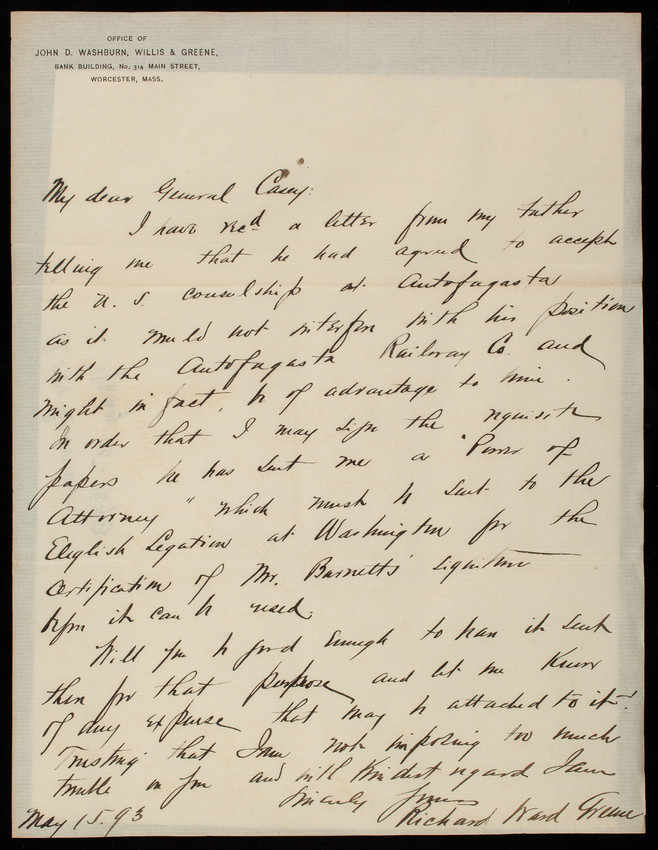 OFFICE OF
JOHN D. WASHBURN, WILLIS & GREENE,
BANK BUILDING, No. 314 MAIN STREET,
WORCESTER, MASS.
My dear General Casey:
I have recd a letter from my father
telling me that he had agreed to accept
the U. S. consulship at Autofagasta
as it would not interfere with his position
with the Autofagasta Railway Co. and
might in fact, be of advantage to him.
In order that I may sign the requisite
papers he has sent me a "Power of
Attorney" which must be sent to the
English Legation at Washington for the
certification of Mr. Barnett's signature
before it can be used.
Will you be good enough to have it sent
then for that purpose and let me know
of any expense that may be attached to it.
Trusting that I am not imposing too much
trouble on you and with kindest regard I am
Sincerely yours
Richard Ward Greene
May 15. 93